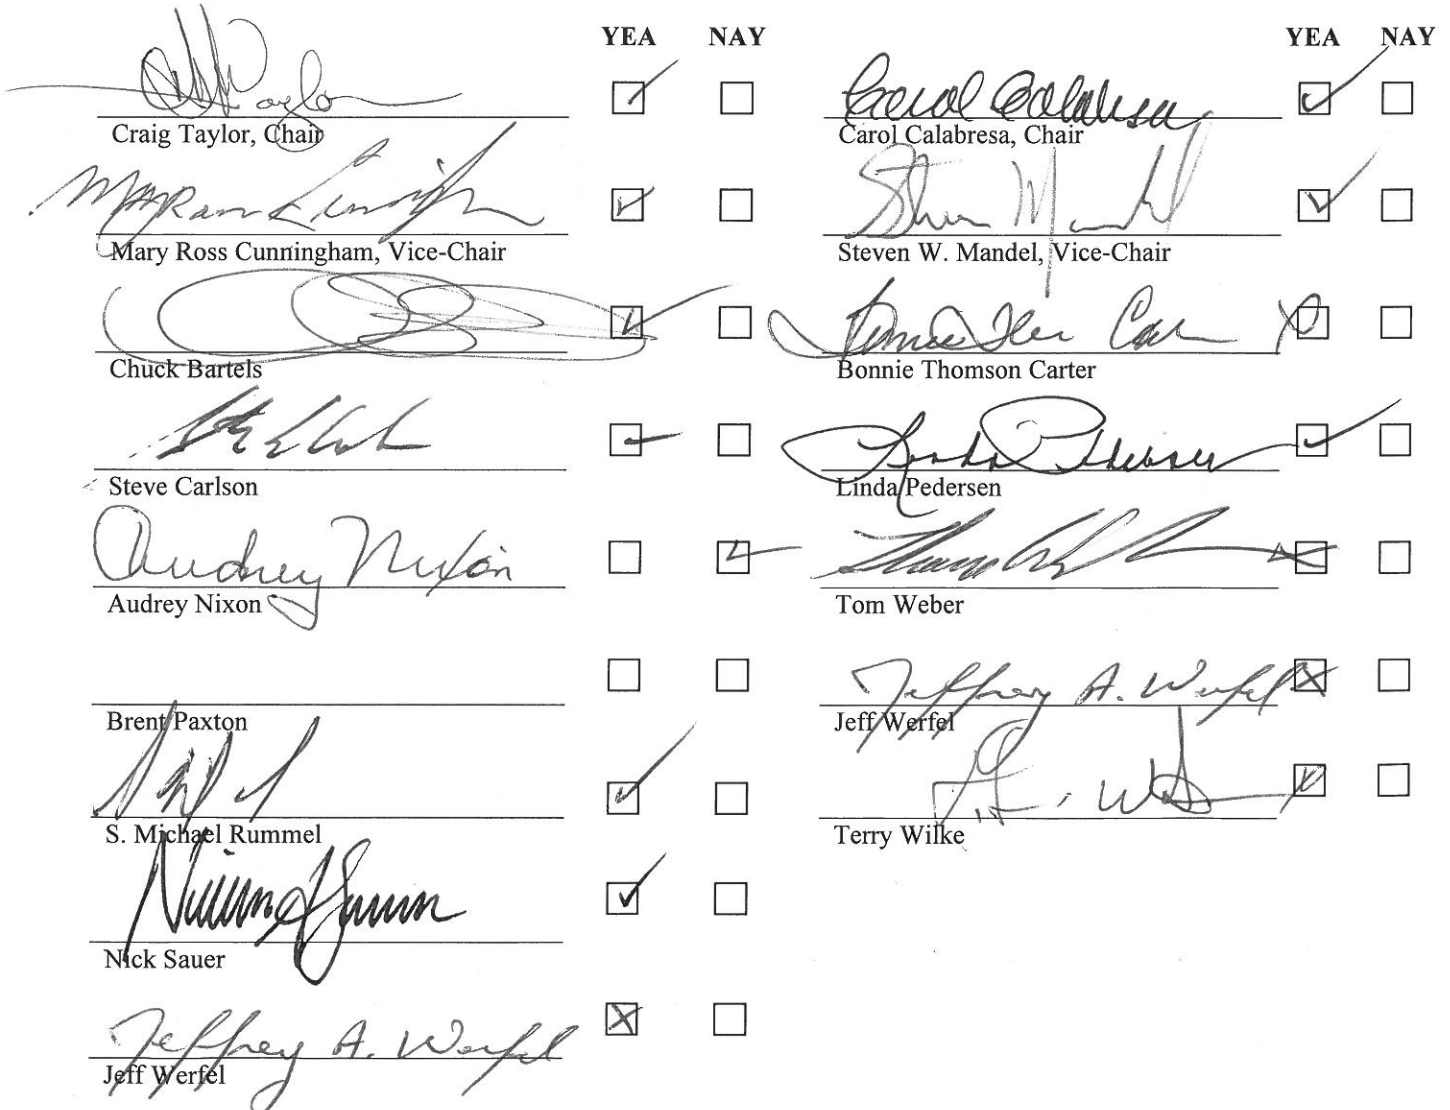 YEA NAY
Craig Taylor, Chair
Mary Ross Cunningham, Vice-Chair
Chuck Bartels
Steve Carlson
Audrey Nixon
Audrey Nixon
Brent Paxton
S. Michael Rummel
Nick Sauer
Jeffrey A. Werfel
Jeff Werfel
YEA NAY
Carol Calabresa
Carol Calabresa, Chair
Steven W. Mandel, Vice-Chair
Bonnie Thomson Carter
Linda Pedersen
Linda Pedersen
Tom Weber
Jeffrey A. Werfel
Jeff Werfel
Terry Wilke